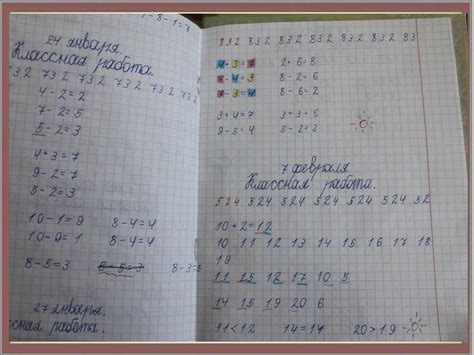 - 8 - 1 = 7
24 января.
Классная работа.
732 732 732 732 732 732
4 - 2 = 2
7 - 2 = 5
5 - 2 = 3
4 + 3 = 7
9 - 2 = 7
5 - 2 = 3
10 - 1 = 9 8 - 4 = 4
10 - 9 = 1 8 - 4 = 4
8 - 5 = 3 8 - 3 = 5
27 января.
Классная работа.
832 832 832 832 832 832 83
4 + 3 = 7 2 + 6 = 8
7 - 3 = 4 8 - 2 = 6
7 - 4 = 3 8 - 6 = 2
3 + 4 = 7 3 + 3 = 6
9 - 5 = 4 5 - 2 = 3
7 февраля
Классная работа.
524 524 524 524 524 524 52
10 + 2 = 12
10 11 12 13 14 15 16 17 18
19
11 15 12 17 10 5
14 15 19 20 6
11 < 12 14 = 14 20 > 19